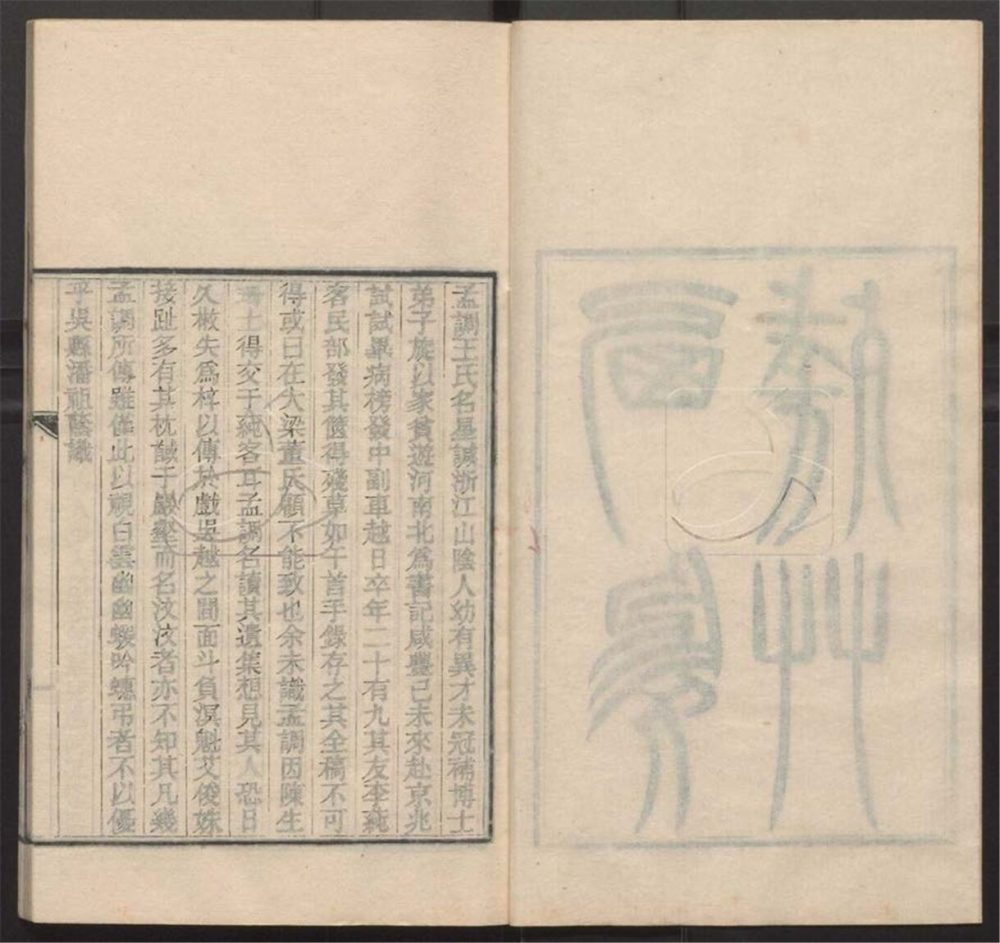 西鳧
殘艸
孟調王氏名星諴浙江山陰人幼有異才未冠補博士
弟子旋以家貧遊河南北爲書記咸豐己未來赴京兆
試試畢病榜發中副車越日卒年二十有九其友李蒓
客民部發其篋得殘草如干首手錄存之其全稿不可
得或曰在大梁董氏顧不能致也余未識孟調因陳生
珊士得交于蒓客耳孟調名讀其遺集想見其人恐日
久散失爲梓以傳於戲吳越之間面斗負溟魁艾俊姝
接趾多有其枕馘于巖壑而名汶汶者亦不知其凡幾
孟調所傳雖僅此以視白雲幽幽蝯吟蟪弔者不以優
乎吳縣潘祖蔭識